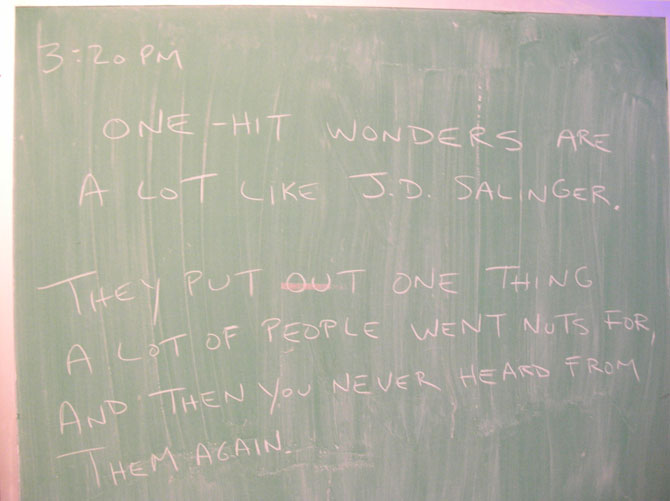 3:20 PM
ONE-HIT WONDERS ARE
A LOT LIKE J.D. SALINGER.
THEY PUT OUT ONE THING
A LOT OF PEOPLE WENT NUTS FOR,
AND THEN YOU NEVER HEARD FROM
THEM AGAIN.